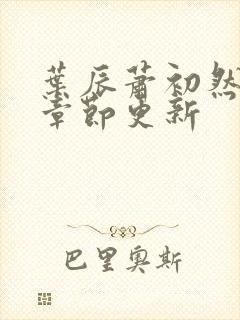 葉辰蕭初然
章節更新
巴里奧斯